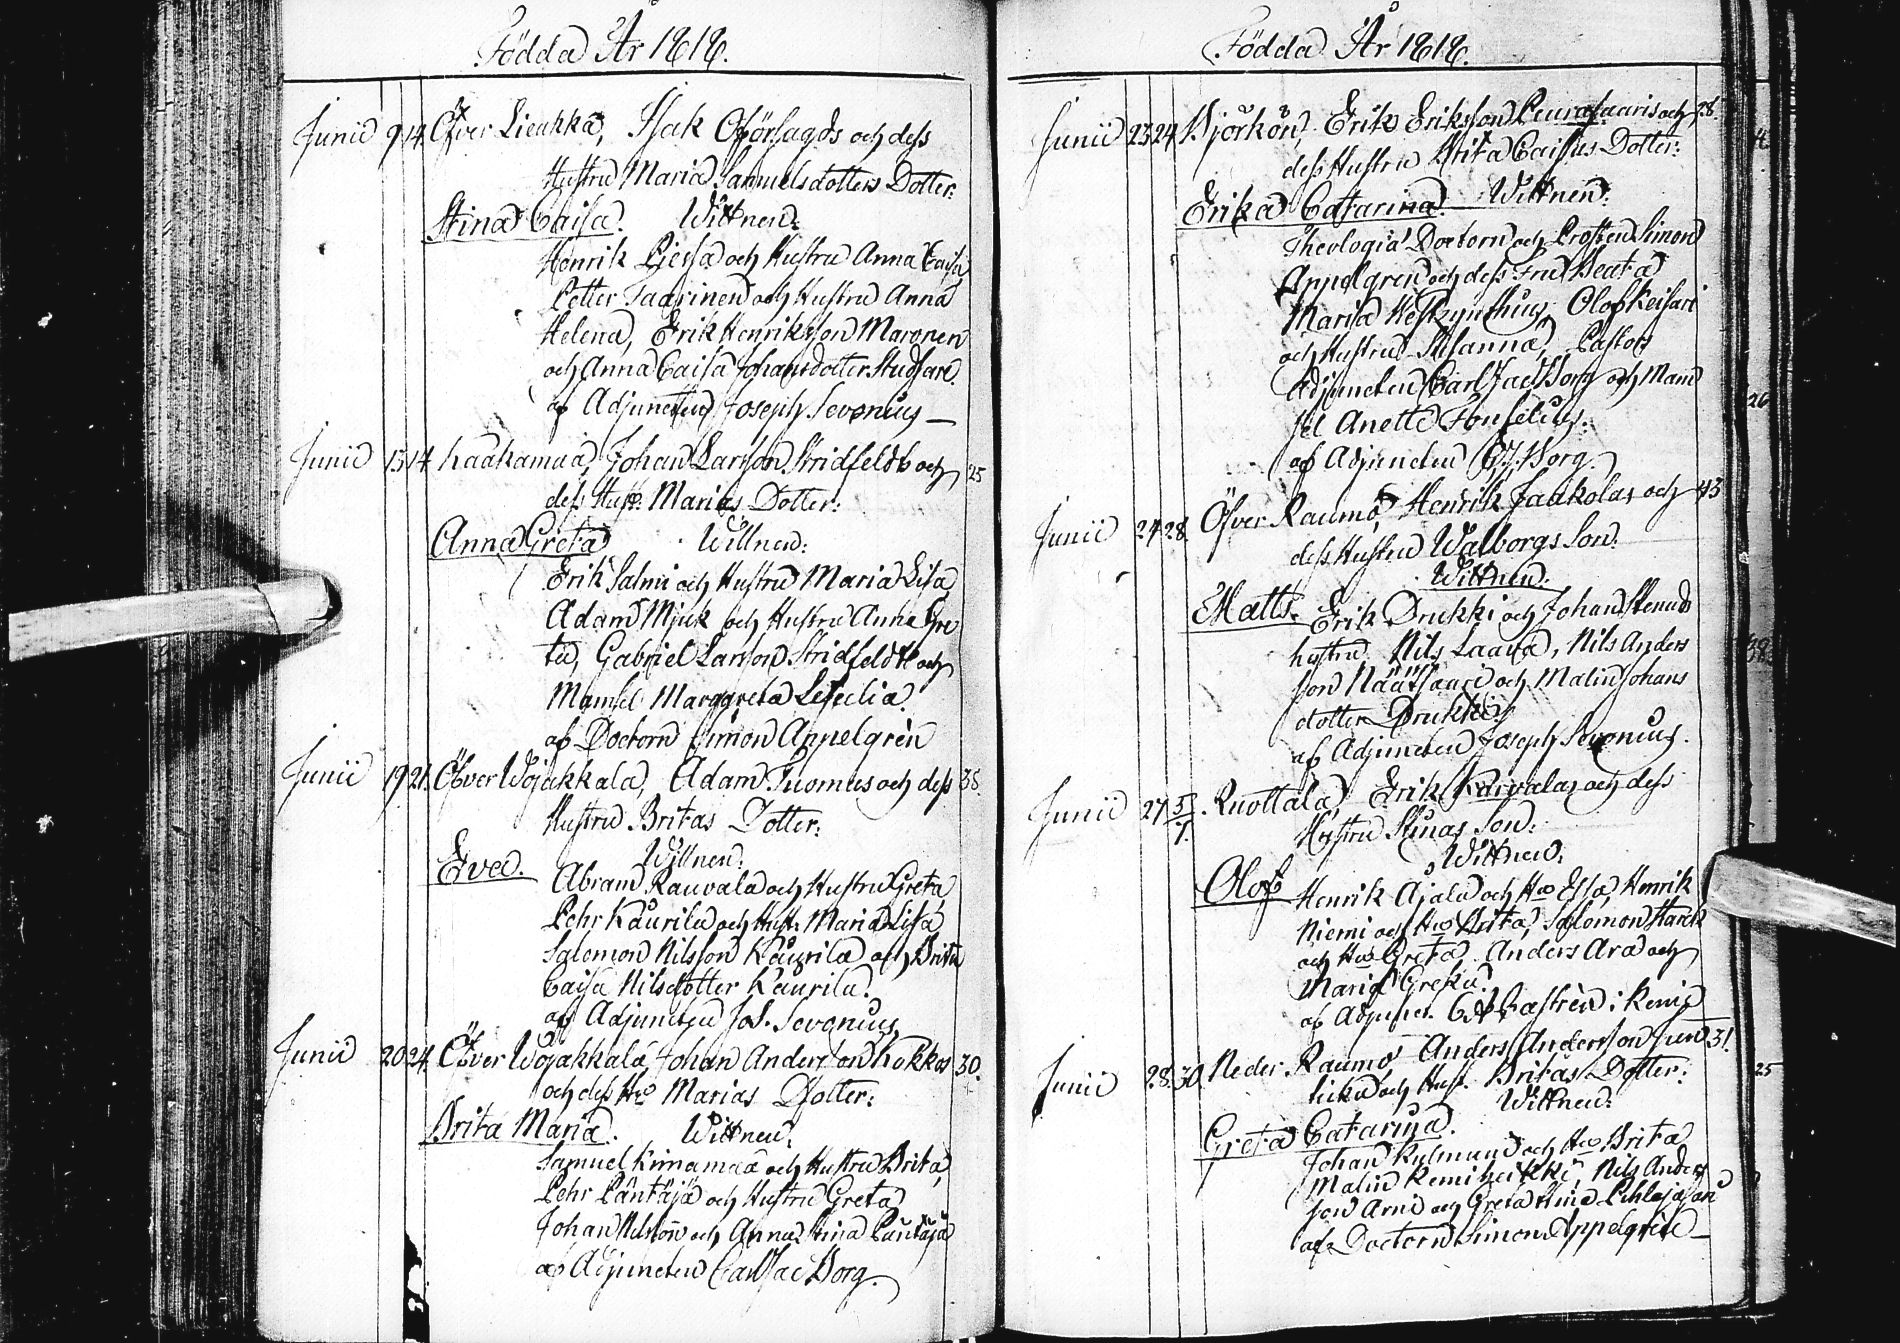 Födda År 1818.
Junii 9 14. Öfver Lieukka, Isak Oförsagds och dess
Hustru Maria Samuelsdotters Dotter:
Stina Caisa. Wittnen:
Henrik Piessa och Hustru Anna Caisa
Petter Taarinen och Hustru Anna
Helena, Erik Henriksson Maronen
och Anna Caisa Johansdotter
af Adjuncten Joseph Sevonius
Junii 13 14. Kaakamaa, Johan Larsson Stridfeldt och 25
dess Hust: Marias Dotter:
Anna Greta Wittnen:
Erik Salmi och Hustru Maria Lisa
Adam Mjuk och Hustru Anna Gre
ta, Gabriel Larsson Stridfeldt och
Mamsel Margareta Cecilia
af Doctorn Simon Appelgrèn
Junii 19 21. Öfver Wojakkala, Adam Tuomas och dess 38.
Hustru Britas Dotter:
Eva. Wittnen:
Abram Rauvala och Hustru Greta,
Pehr Kaurila och Hust: Maria Lisa
Salomon Nilsson Kaurila och Brita
Caisa Nilsdotter Kaurila.
af Adjuncten Jos. Sevonius
Junii 20 24. Öfver Wojakkala, Johan Andersson Kokkos 30.
och dess Hu Marias Dotter:
Brita Maria. Wittnen:
Samuel Kinamaa och Hustru Brita,
Pehr Päntäjä och Hustru Greta
Johan Nilsson och Anna Stina Päntäjä
af Adjuncten Carl Jac Borg.
Födda År 1818.
Junii 23 24 Björkön, Erik Eriksson Peurasaaris och 28
dess Hustru Brita Caisas Dotter:
Erika Catarina. Wittnen:
Theologiæ Doctorn och Prosten Simon
Appelgren och dess Fru Beata
Maria Heskzynthius, Olof Keisari
och Hustru Susanna, Pastors
Adjuncten Carl Jac Borg och Mam
sel Anette Fonselius.
af Adjuncten C. J. Borg.
Junii 24 28. Öfver Raumo, Henrik Jaakolas och 43
dess Hustru Walborgs Son.
Wittnen:
Matts. Erik Drukki och Johan Stenuds
hustru, Nils Laana, Nils Anders
son Näätsaari och Malin Johans
dotter Drukki
af Adjuncten Joseph Sevonius.
Junii 27 5/7. Ruottala, Erik Karvalas och dess
Hustru Stinas Son:
Wittnen:
Olof Henrik Ajala och Hu Elsa, Henrik
Niemi och Hu Brita, Salomon Starck
och Hu Greta. Anders Ara och
Maria Greta.
af Adjunct. Castrèn i Kemi
Junii 28 30. Neder Raumo, Anders Andersson 31.
och Hust. Britas Dotter:
Wittnen:
Greta Catarina.
Johan Kylmand och Hu Brita
Malin Kemiheikki, Nils Anders
son Arni och Greta Stina Pohlajaan
af Doctorn Simon Appelgrèn
4.
26
39.
25